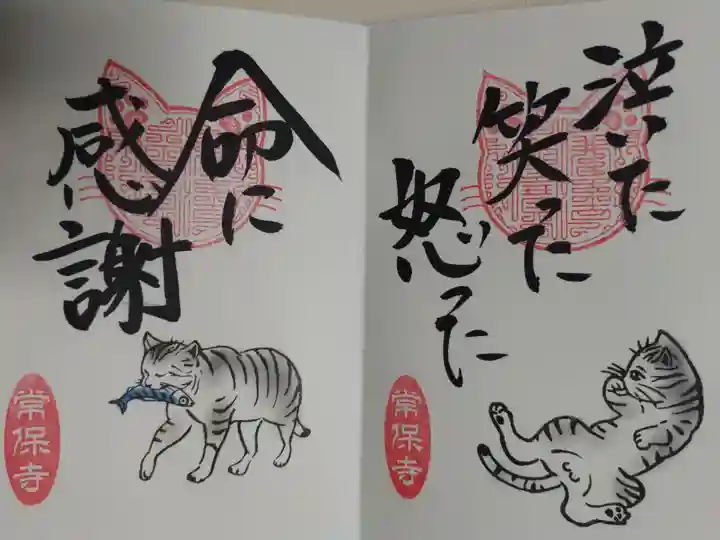 泣いた
笑った
怒った
常保寺
命に
感謝
常保寺